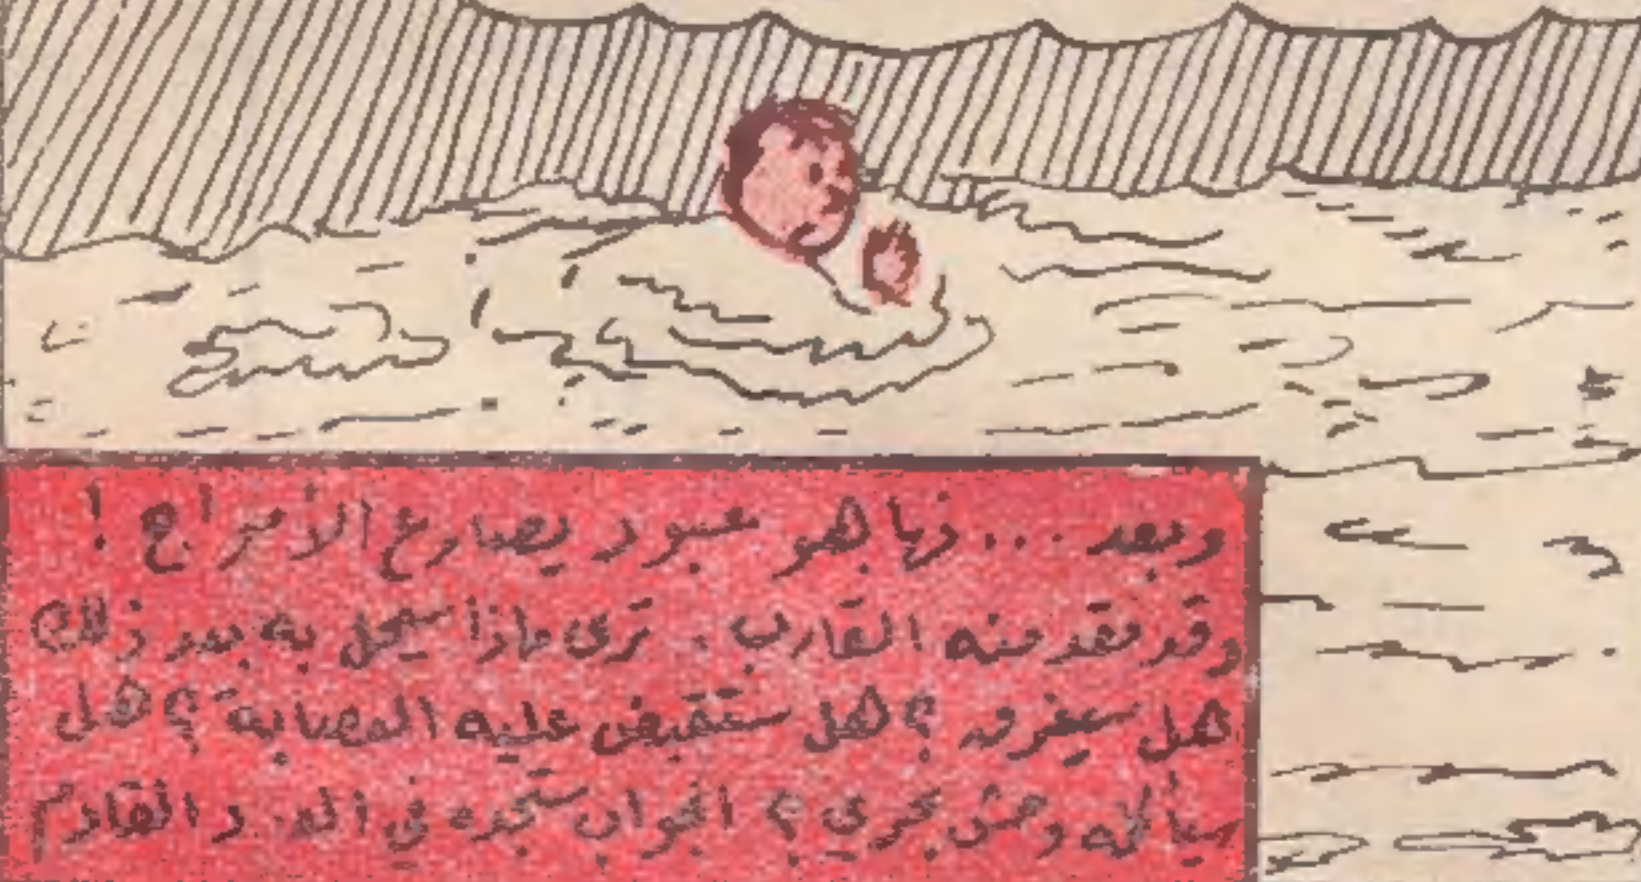 وبعد ... فها هو عبود يصارع الأمواج !
وقد فقد منه القارب . ترى ماذا سيحل به بعد ذلك
هل سيغرق ؟ هل ستقبض عليه العصابة ؟ هل
سيأكله وحش بحري ؟ الجواب ستجده في العدد القادم